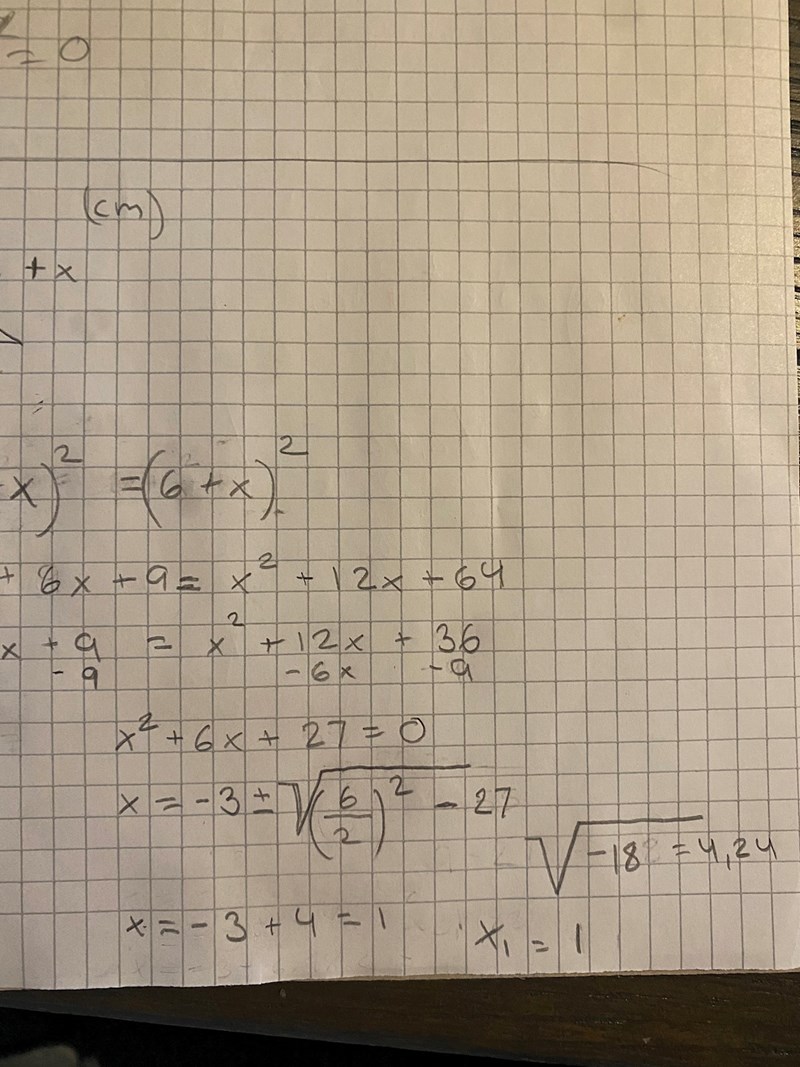 = 0
(cm)
+ x
x)² = (6 + x)²
+ 6x + 9 = x² + 12x + 64
x + 9 = x² + 12x + 36
- 9 - 6x - 9
x² + 6x + 27 = 0
x = -3 ± √(6/2)² - 27
√-18 = 4,24
x = -3 + 4 = 1 x₁ = 1